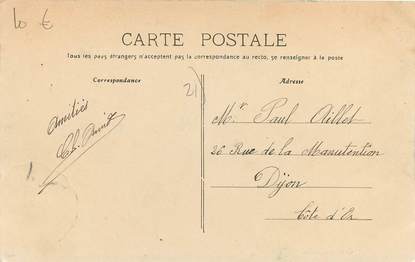 10 €
CARTE POSTALE
Tous les pays étrangers n'acceptent pas la correspondance au recto, se renseigner à la poste
Correspondance
Adresse
21)
Amitiés
Mr Paul Aillet
26 Rue de la Manutention
Dijon
Côte d'Or